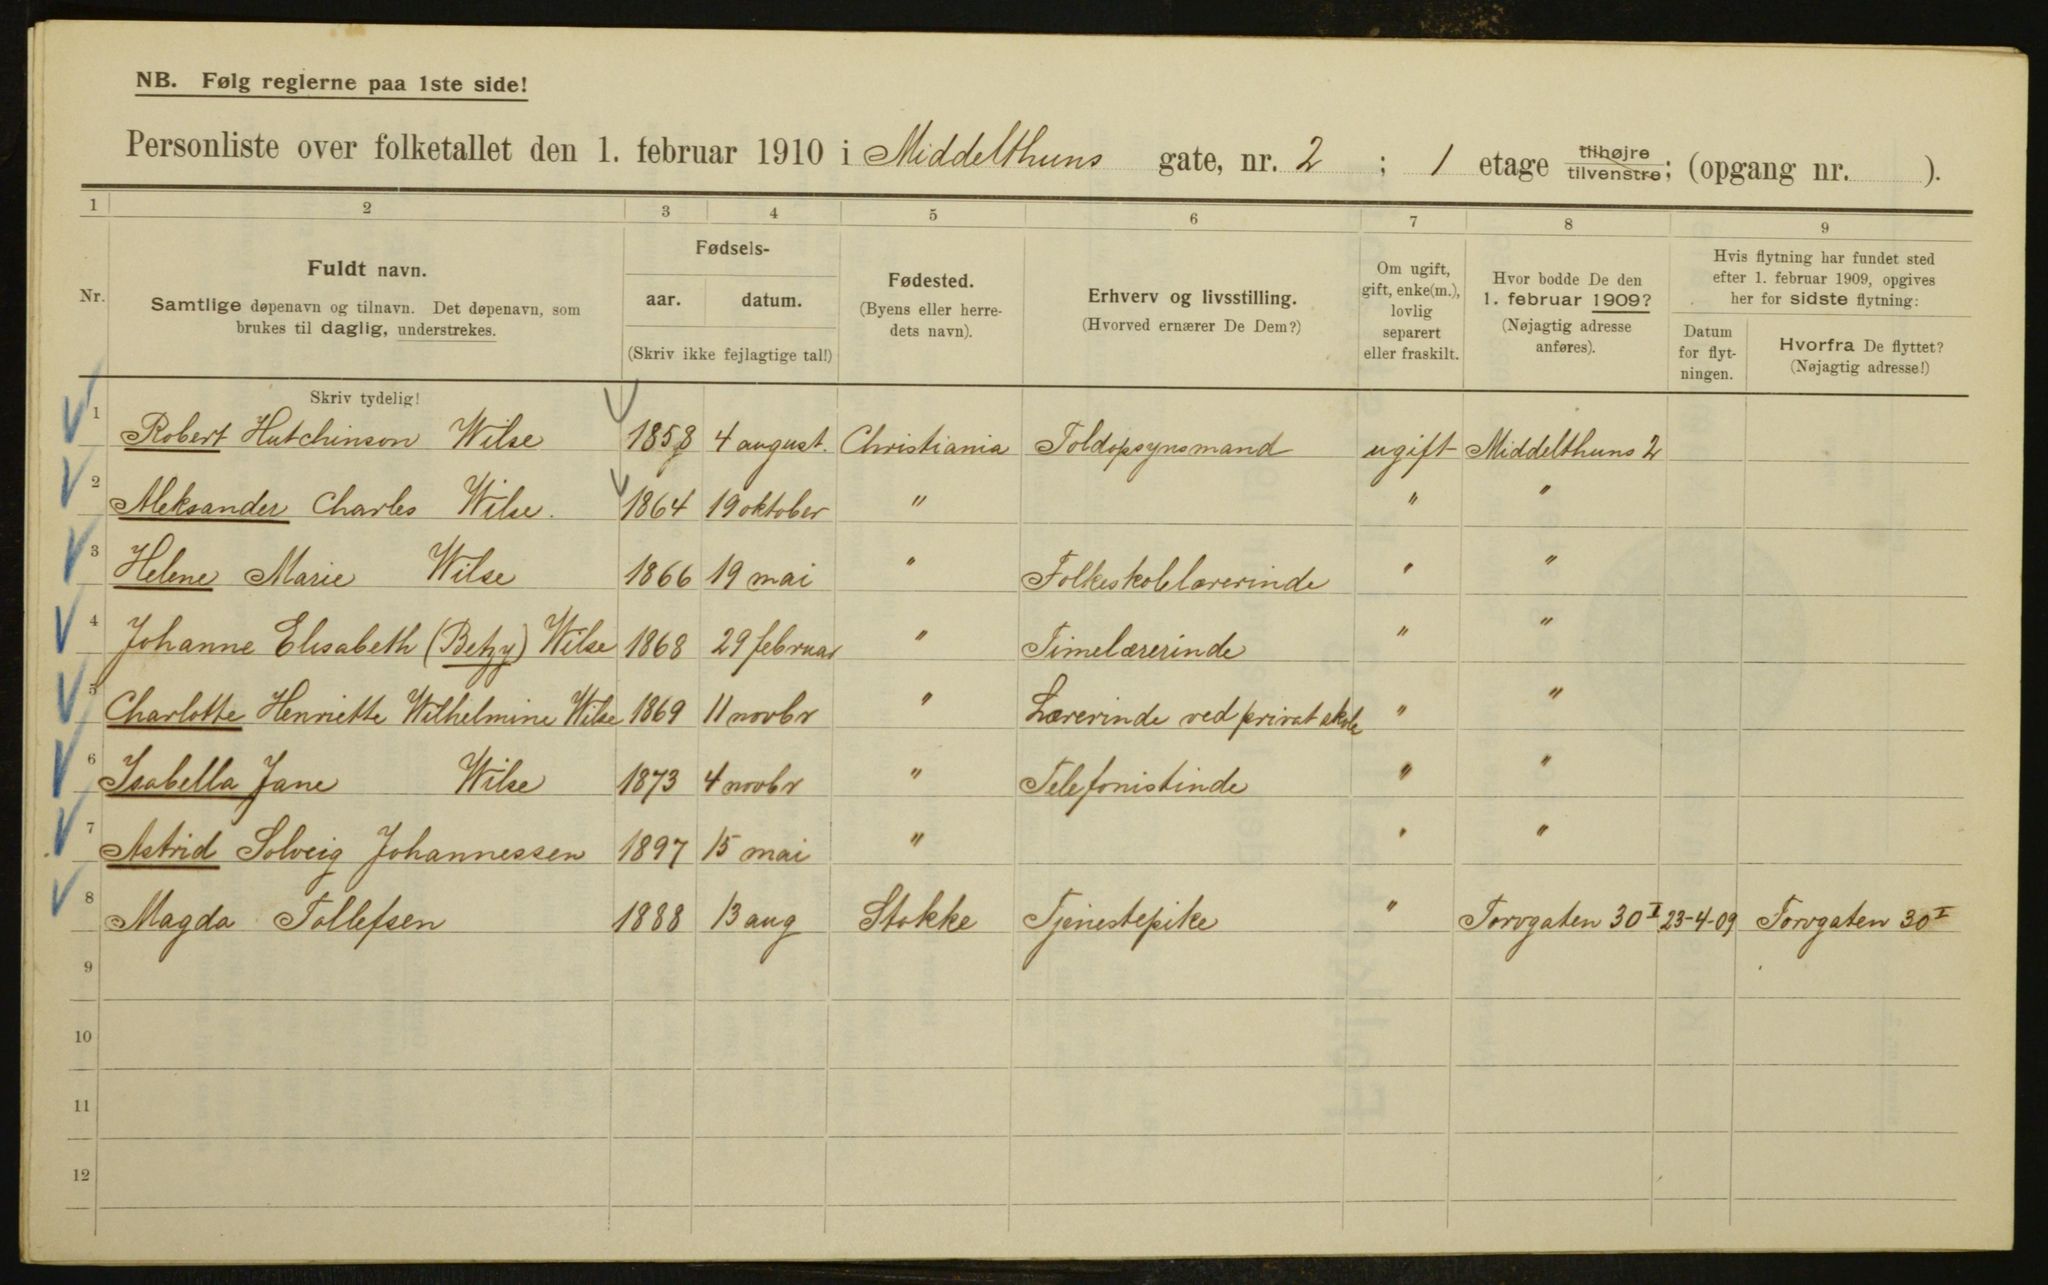 NB. Følg reglerne paa 1ste side!
Personliste over folketallet den 1. februar 1910 i Middelthuns gate, nr. 2 ; 1 etage tilhøjre tilvenstre; (opgang nr. ).
1 2 3 4 5 6 7 8 9
Nr.
Fuldt navn.
Samtlige døpenavn og tilnavn. Det døpenavn, som
brukes til daglig, understrekes.
Fødsels-
aar. datum.
(Skriv ikke fejlagtige tal!)
Fødested.
(Byens eller herre-
dets navn).
Erhverv og livsstilling.
(Hvorved ernærer De Dem?)
Om ugift,
gift, enke(m.),
lovlig
separert
eller fraskilt.
Hvor bodde De den
1. februar 1909?
(Nøjagtig adresse
anføres).
Hvis flytning har fundet sted
efter 1. februar 1909, opgives
her for sidste flytning:
Datum
for flyt-
ningen.
Hvorfra De flyttet?
(Nøjagtig adresse!)
Skriv tydelig!
1 Robert Hutchinson Wilse 1858 4 august. Christiania Toldopsynsmand ugift Middelthuns 2
2 Aleksander Charles Wilse. 1864 19 oktober " " "
3 Helene Marie Wilse 1866 19 mai " Folkeskolelærerinde " "
4 Johanne Elisabeth (Betzy) Wilse 1868 29 februar " Timelærerinde " "
5 Charlotte Henriette Wilhelmine Wilse 1869 11 novbr " Lærerinde ved privat skole " "
6 Isabella Jane Wilse 1873 4 novbr " Telefonistinde " "
7 Astrid Solveig Johannessen 1897 15 mai " " "
8 Magda Tollefsen 1888 13 aug Stokke Tjenestepike " Torvgaten 30 I 23-4-09 Torvgaten 30 I
9
10
11
12